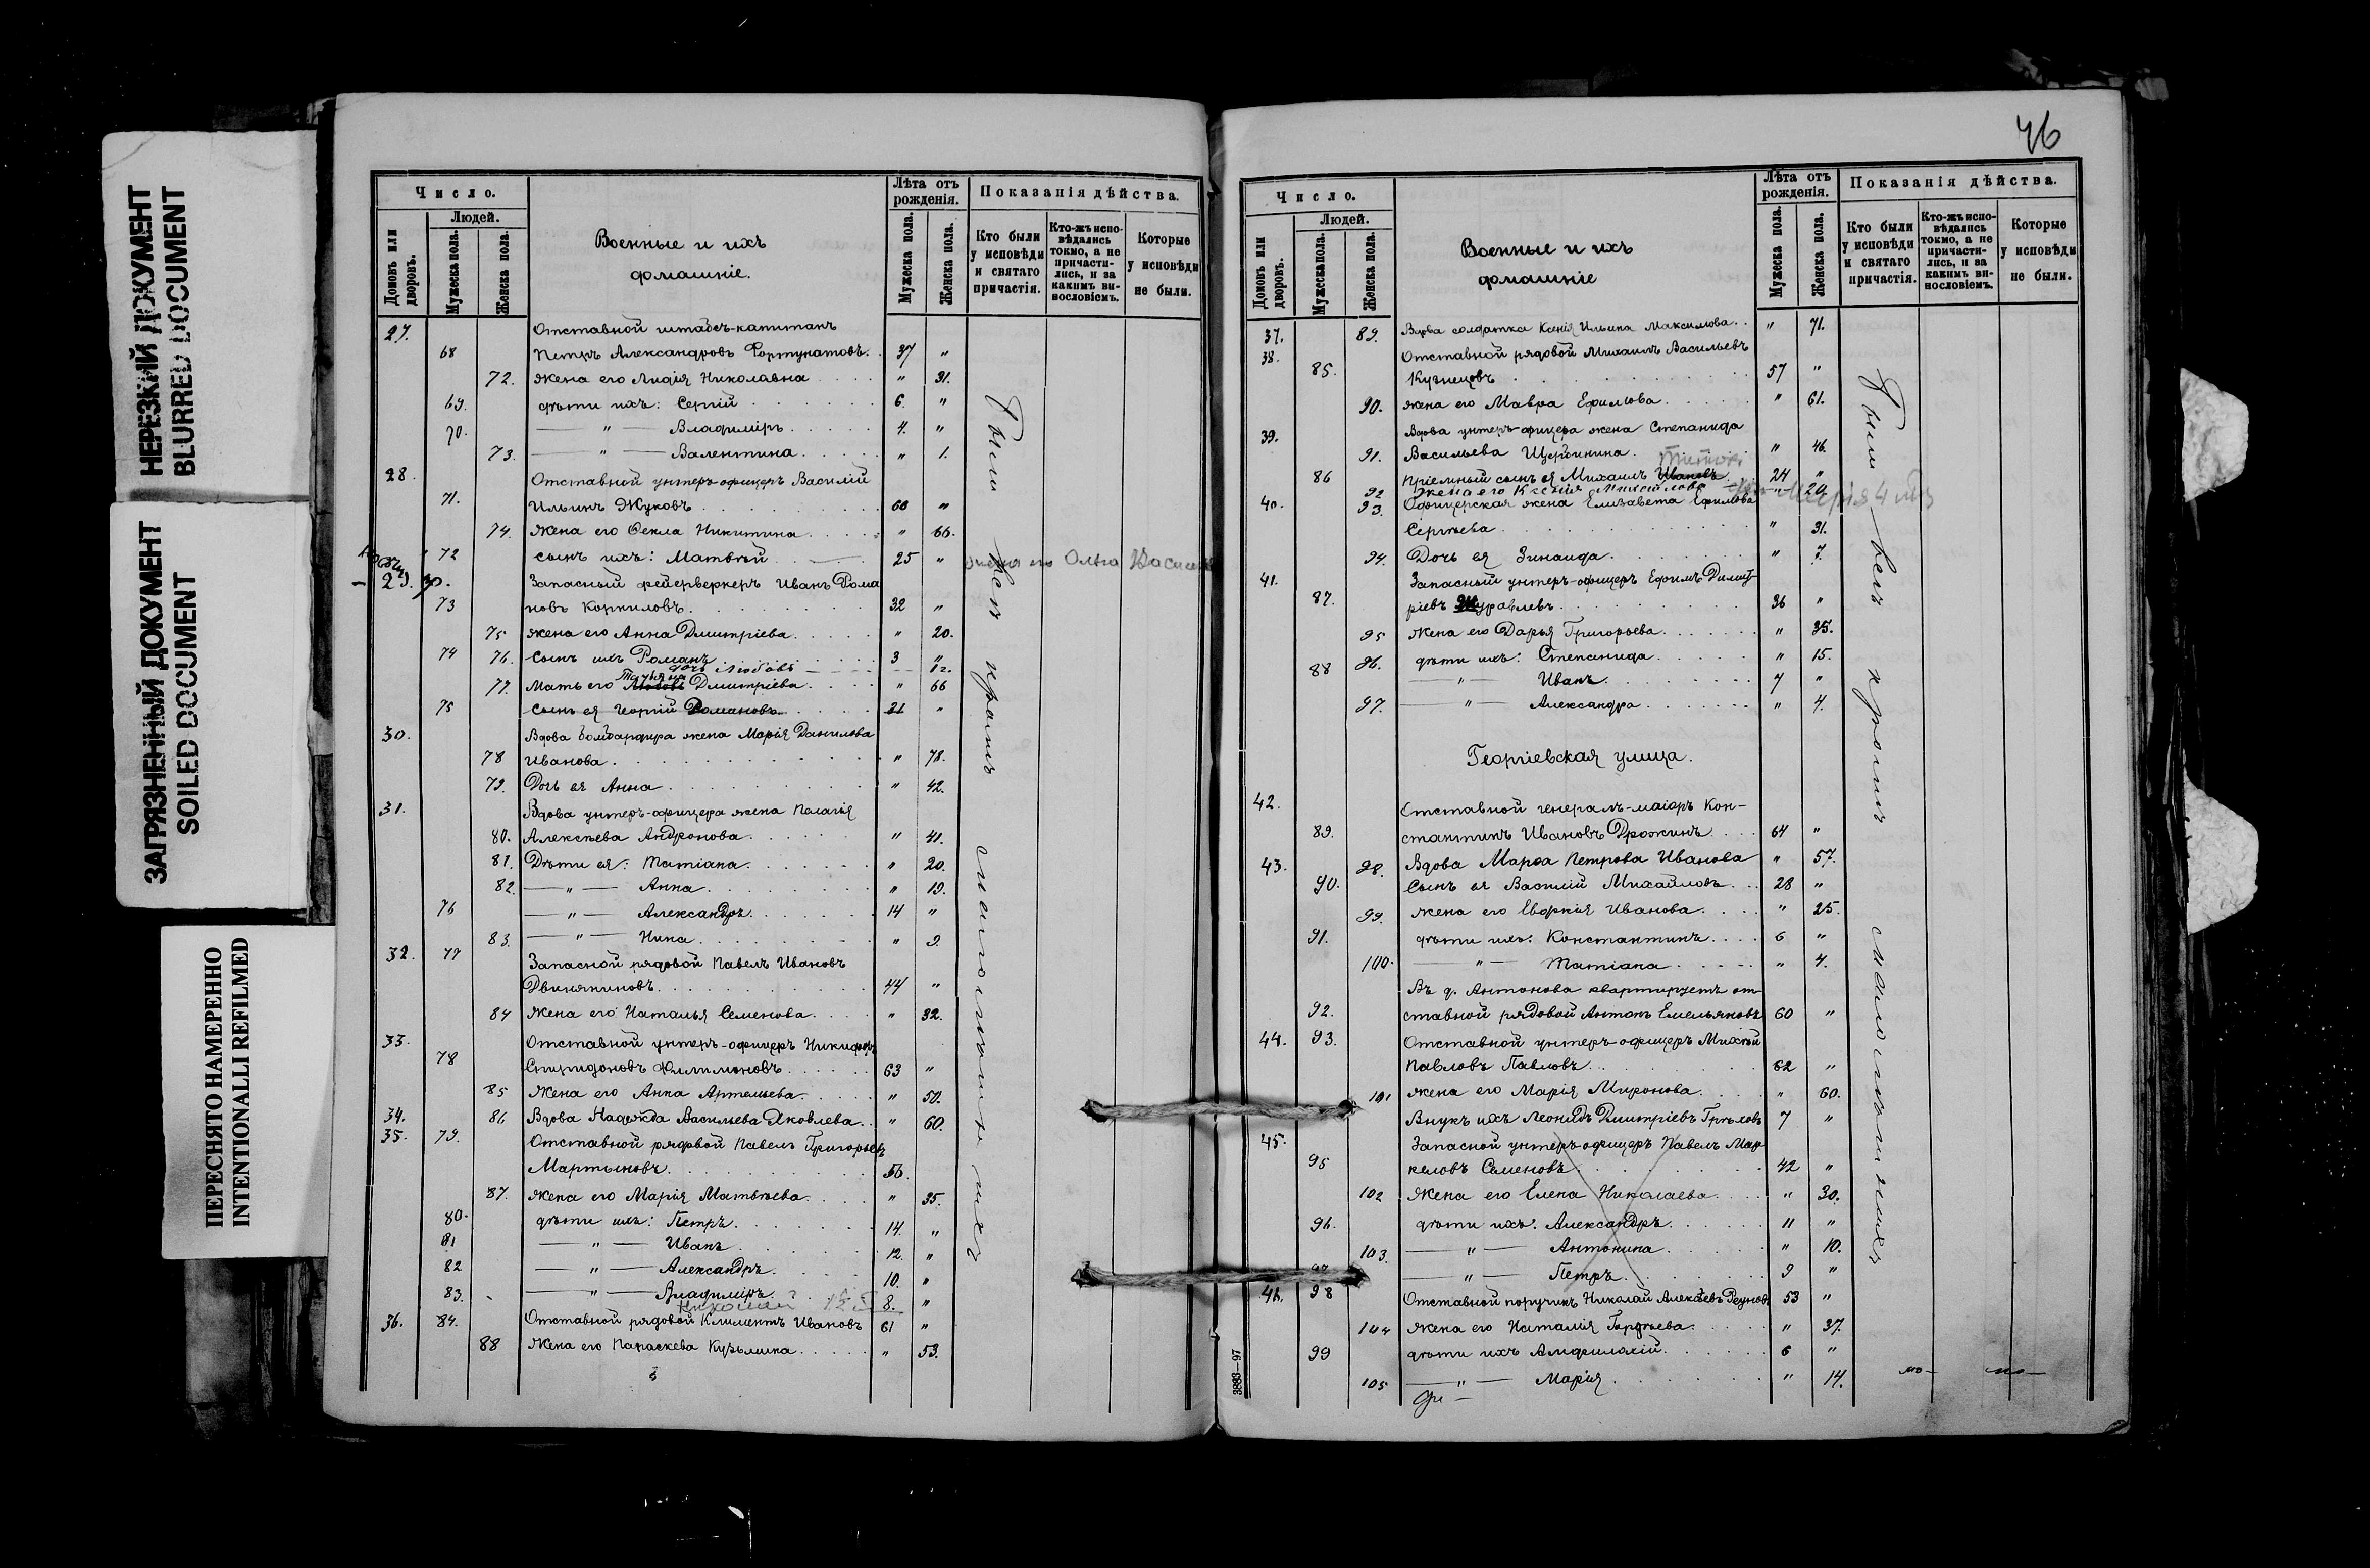 НЕРЕЗКИЙ ДОКУМЕНТ
BLURRED DOCUMENT
ЗАГРЯЗНЕННЫЙ ДОКУМЕНТ
SOILED DOCUMENT
ПЕРЕСНЯТО НАМЕРЕННО
INTENTIONALLI REFILMED
Число.
Людей.
Домовъ или дворовъ.
Мужеска пола.
Женска пола.
Военные и ихъ
домашніе.
Лѣта отъ рожденія.
Мужеска пола.
Женска пола.
Показанія дѣйства.
Кто были у исповѣди и святаго причастія.
Кто-жъ исповѣдались токмо, а не причастились, и за какимъ винословіемъ.
Которые у исповѣди не были.
27. Отставной штабсъ-капитанъ
68 Петръ Александровъ Фортунатовъ. 37 "
72. Жена его Лидія Николавна " 31.
69. дѣти ихъ: Сергій 6. "
70. — " — Владиміръ 4. "
73. — " — Валентина " 1.
28. Отставной унтеръ-офицеръ Василій
71. Ильинъ Жуковъ 68 "
74. Жена его Ѳекла Никитина " 66.
72 сынъ ихъ: Матвѣй 25 " жена его Ольга
29. Запасный фейерверкеръ Иванъ Рома
73 новъ Корниловъ 32 "
75 жена его Анна Дмитріева " 20.
74 76. Сынъ ихъ Романъ 3 "
дочь Любовь
77. Мать его Татьяна Любовь Дмитріева " 66
75 сынъ ея Георгій Романовъ 21 "
30. Вдова бомбардира жена Марія Данилова
78 Иванова " 78.
79. Дочь ея Анна " 42.
31. Вдова унтеръ-офицера жена Пелагія
80. Алексѣева Андронова " 41.
81. Дѣти ея: Татіана " 20.
82. — " — Анна " 19.
76 — " — Александръ 14 "
83. — " — Нина " 9.
32. 77 Запасной рядовой Павелъ Ивановъ
Двинятиновъ 44 "
84 Жена его Наталья Семенова " 32.
33. Отставной унтеръ-офицеръ Никифоръ
78 Спиридоновъ Филимоновъ 63 "
85 Жена его Анна Артемьева " 50.
34. 86 Вдова Надежда Васильева Яковлева " 60.
35. 79. Отставной рядовой Павелъ Григорьевъ
Мартыновъ 56.
87. Жена его Марія Матвѣева " 35.
80. дѣти ихъ: Петръ 14. "
81 — " — Иванъ 12. "
82 — " — Александръ 10. "
83. — " — Владиміръ 8. "
Николай
36. 84. Отставной рядовой Климентъ Ивановъ 61 "
88 Жена его Параскева Кузьмина " 53.
Были всѣ кромѣ малолѣтнихъ
46
Число.
Людей.
Домовъ или дворовъ.
Мужеска пола.
Женска пола.
Военные и ихъ
домашніе
Лѣта отъ рожденія.
Мужеска пола.
Женска пола.
Показанія дѣйства.
Кто были у исповѣди и святаго причастія.
Кто-жъ исповѣдались токмо, а не причастились, и за какимъ винословіемъ.
Которые у исповѣди не были.
37. 89. Вдова солдатка Ксенія Ильина Максимова " 71.
38. Отставной рядовой Михаилъ Васильевъ
85. Кузнецовъ 57 "
90. жена его Мавра Ефимова " 61.
39. Вдова унтеръ-офицера жена Степанида
91. Васильева Щербинина " 46.
86 Пріемный сынъ ея Михаилъ Ивановъ 24 "
92 Жена его Ксенія " 20 Марія 4
40. 93. Офицерская жена Елизавета Ефимова
Сергѣева " 31.
94. Дочь ея Зинаида " 7.
41. Запасный унтеръ-офицеръ Ефимъ Димит-
87. ріевъ Журавлевъ 36 "
95 жена его Дарья Григорьева " 35.
88 96. дѣти ихъ: Степанида " 15.
— " — Иванъ 7 "
97. — " — Александра " 4.
Георгіевская улица.
42. Отставной генералъ-маіоръ Кон-
89. стантинъ Ивановъ Дрожинъ 64 "
43. 98. Вдова Марѳа Петрова Иванова " 57.
90. Сынъ ея Василій Михайловъ 28 "
99. Жена его Евдокія Иванова " 25.
91. дѣти ихъ: Константинъ 6 "
100. — " — Татіана " 4.
Въ д. Антонова квартируетъ от-
92. ставной рядовой Антонъ Емельяновъ 60 "
44. 93. Отставной унтеръ-офицеръ Михѣй
Павловъ Павловъ 62 "
101 жена его Марія Миронова " 60.
Внукъ ихъ Леонидъ Дмитріевъ 7 "
45. Запасной унтеръ-офицеръ Павелъ Мар-
95 келовъ Семеновъ 42 "
102 Жена его Елена Николаева " 30.
96. дѣти ихъ: Александръ 11 "
103. — " — Антонина " 10.
— " — Петръ 9 "
46. 98 Отставной поручикъ Николай Алексѣевъ 53 "
104 Жена его Наталія Гордѣева " 37.
99 дѣти ихъ Амфилохій 6 "
105 — " — Марія " 14.
Были всѣ кромѣ малолѣтнихъ
3883—97